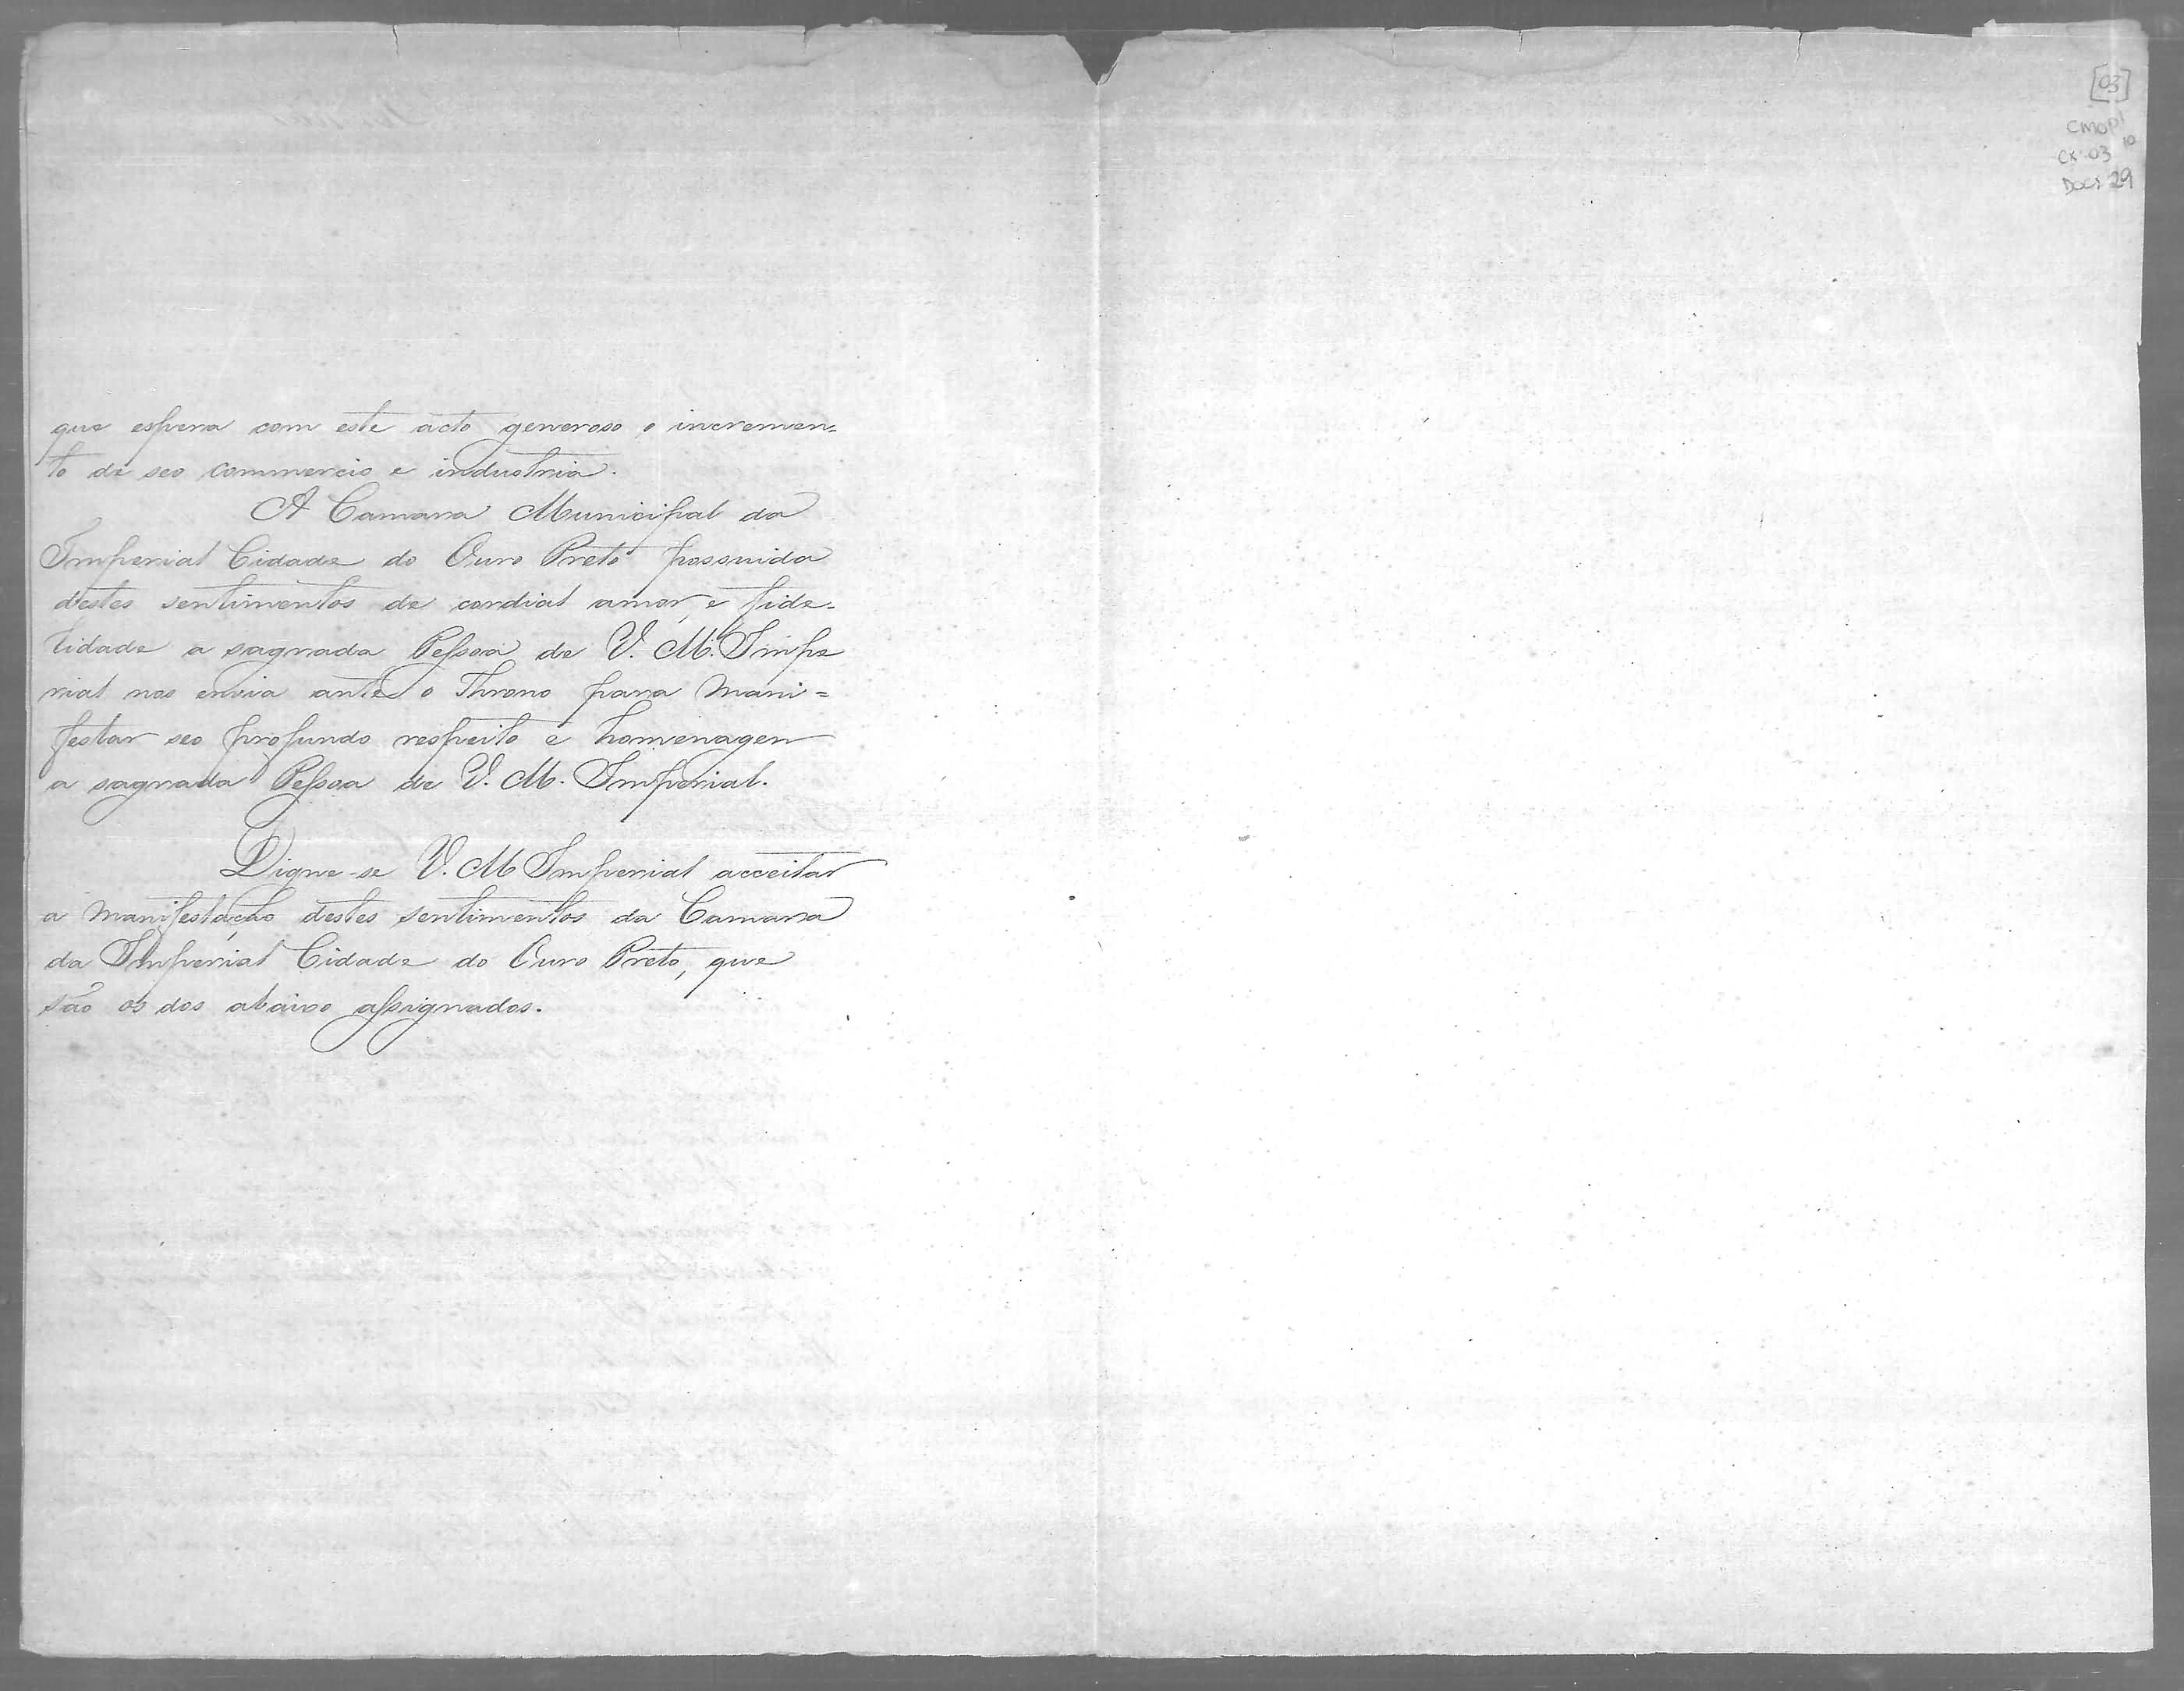 que espera com este acto generoso o incremen=
to de seo commercio e industria.
A Camara Municipal da
Imperial Cidade do Ouro Preto possuida
destes sentimentos de cordial amor, e fide-
lidade a sagrada Pessoa de V. M. Impe
rial nos envia ante o Throno para mani=
festar seo profundo respeito e homenagen
a sagrada Pessoa de V. M. Imperial.
Digne-se V. M Imperial acceitar
a manifestação destes sentimentos da Camara
da Imperial Cidade do Ouro Preto, que
são os dos abaixo assignados.
[03]
CMOP/
CX 03 10
DOCS 29